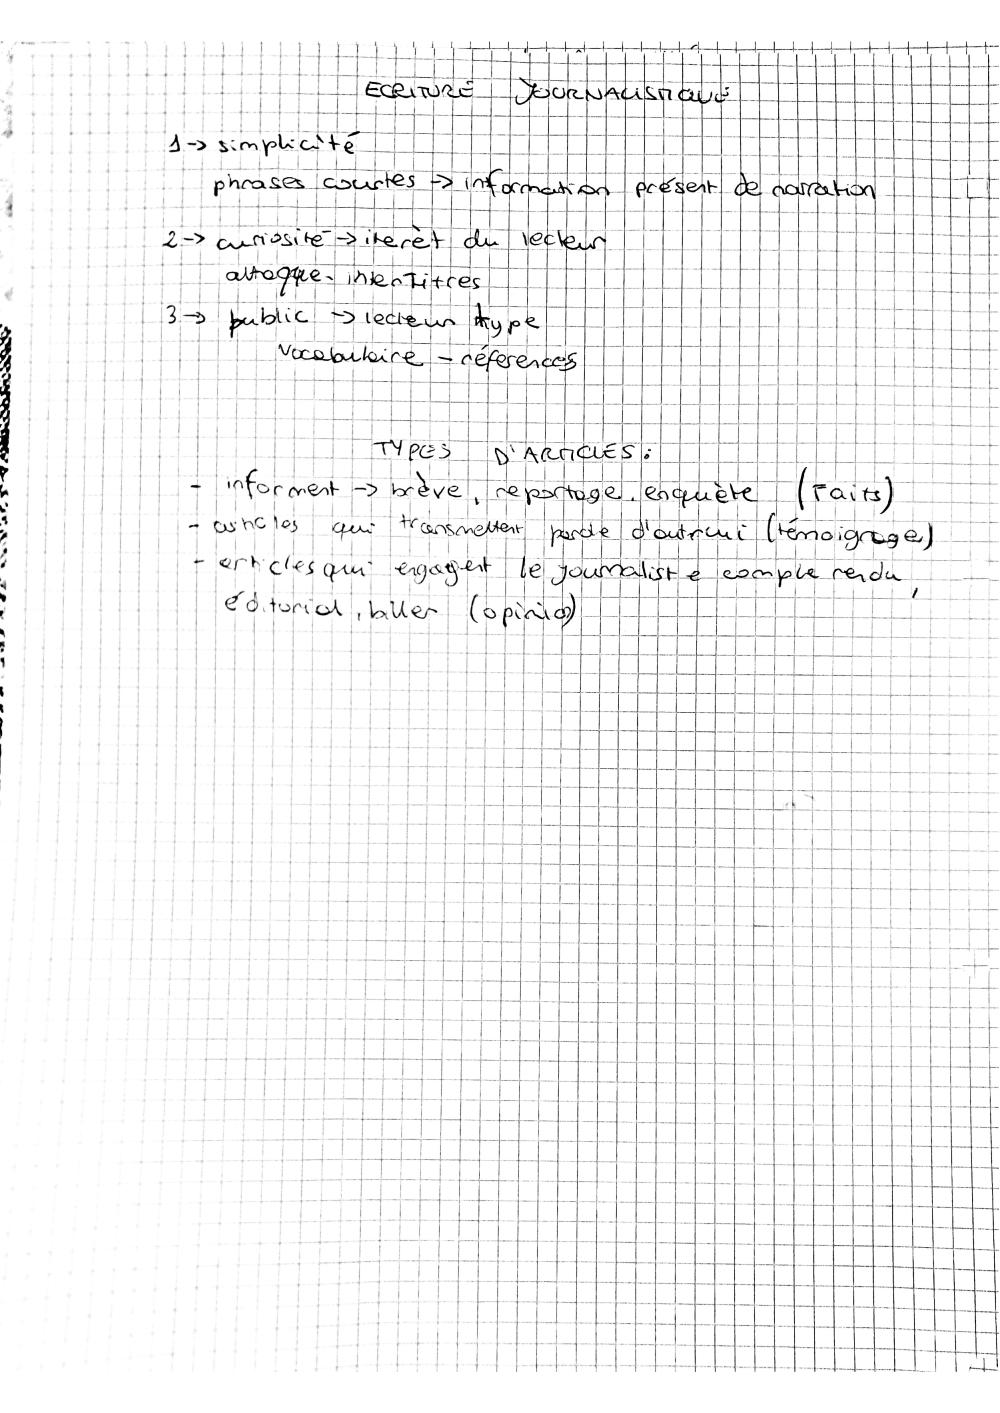 ECRITURE JOURNALISTIQUE
1-> simplicité
phrases courtes -> information présent de narration
2-> curiosité -> iterèt du lecteur
attaque - intertitres
3-> public -> lecteur type
vocabulaire - références
TYPES D'ARTICLES :
- informent -> brève, reportage, enquète (Faits)
- articles qui transmettent parole d'autrui (témoignage)
- articles qui engagent le journaliste compte rendu,
éditorial, billet (opinio)